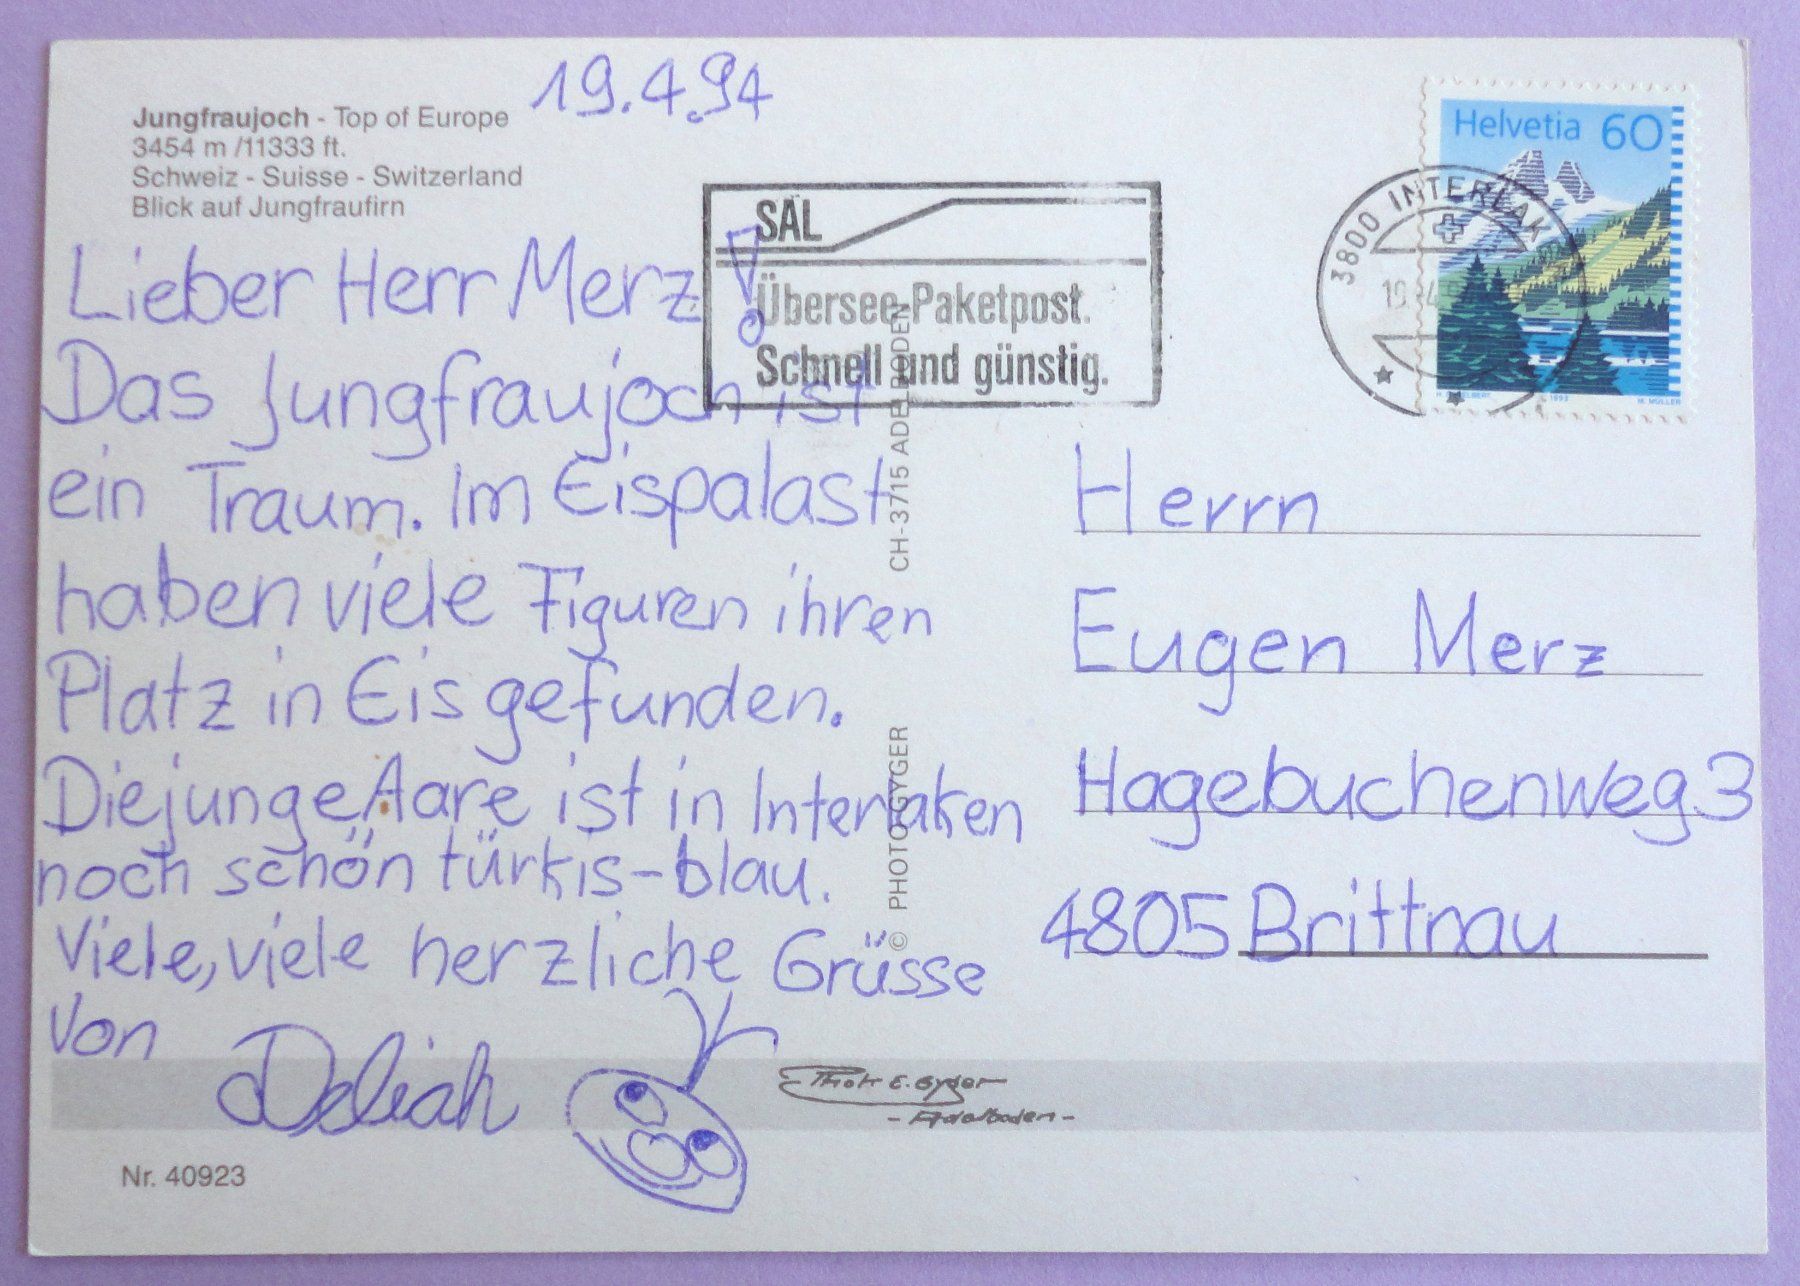 19.4.94
Jungfraujoch - Top of Europe
3454 m /11333 ft.
Schweiz - Suisse - Switzerland
Blick auf Jungfraufirn
Helvetia 60
H. MÜLLER
3800 INTERLAKEN
19.-4.
SAL
Übersee-Paketpost.
Schnell und günstig.
Lieber Herr Merz!
Das Jungfraujoch ist
ein Traum. Im Eispalast
haben viele Figuren ihren
Platz in Eis gefunden.
Die junge Aare ist in Interlaken
noch schön türkis-blau.
Viele, viele herzliche Grüsse
von
Deliah
Herrn
Eugen Merz
Hagebuchenweg 3
4805 Brittnau
© PHOTO GYGER CH-3715 ADELBODEN
Phot E. Gyger
- Adelboden -
Nr. 40923